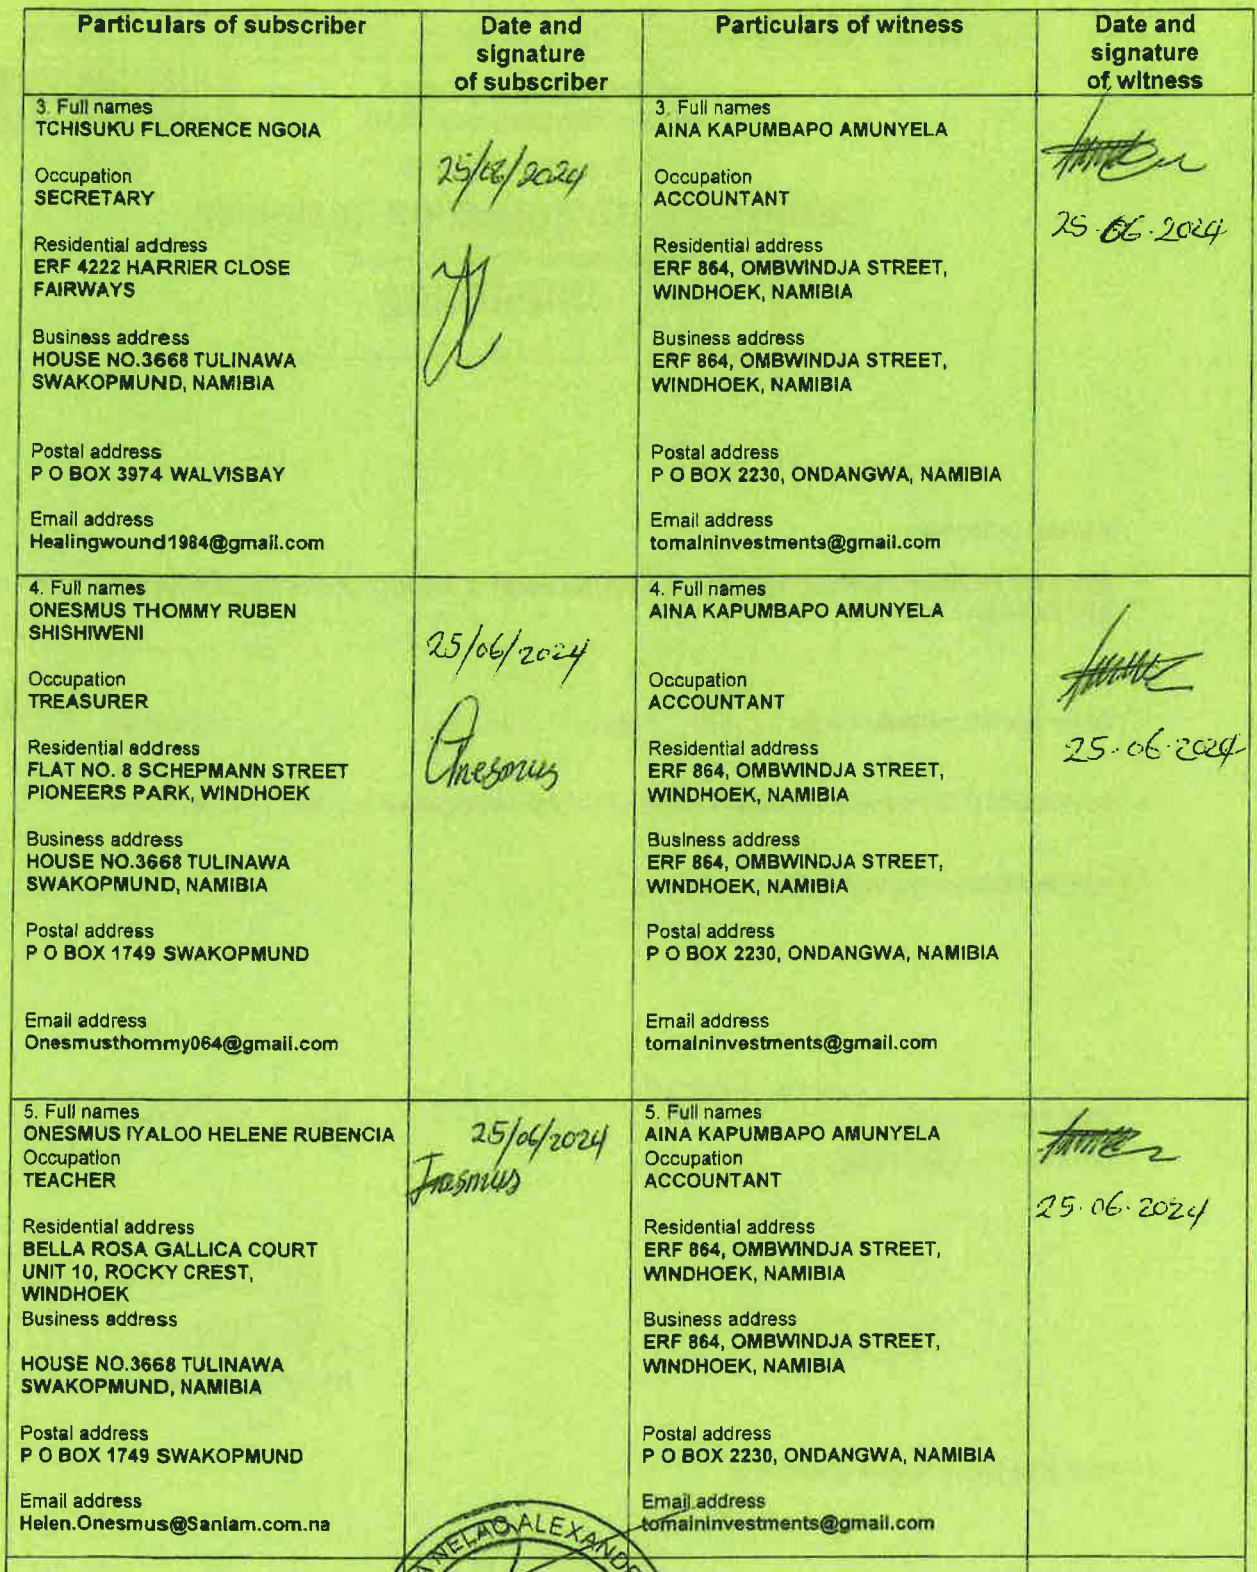 Particulars of subscriber
Date and
signature
of subscriber
Particulars of witness
Date and
signature
of witness
3. Full names
TCHISUKU FLORENCE NGOIA
Occupation
SECRETARY
Residential address
ERF 4222 HARRIER CLOSE
FAIRWAYS
Business address
HOUSE NO.3668 TULINAWA
SWAKOPMUND, NAMIBIA
Postal address
P O BOX 3974 WALVISBAY
Email address
Healingwound1984@gmail.com
25/06/2024
3. Full names
AINA KAPUMBAPO AMUNYELA
Occupation
ACCOUNTANT
Residential address
ERF 864, OMBWINDJA STREET,
WINDHOEK, NAMIBIA
Business address
ERF 864, OMBWINDJA STREET,
WINDHOEK, NAMIBIA
Postal address
P O BOX 2230, ONDANGWA, NAMIBIA
Email address
tomaininvestments@gmail.com
25.06.2024
4. Full names
ONESMUS THOMMY RUBEN
SHISHIWENI
Occupation
TREASURER
Residential address
FLAT NO. 8 SCHEPMANN STREET
PIONEERS PARK, WINDHOEK
Business address
HOUSE NO.3668 TULINAWA
SWAKOPMUND, NAMIBIA
Postal address
P O BOX 1749 SWAKOPMUND
Email address
Onesmusthommy064@gmail.com
25/06/2024
Onesmus
4. Full names
AINA KAPUMBAPO AMUNYELA
Occupation
ACCOUNTANT
Residential address
ERF 864, OMBWINDJA STREET,
WINDHOEK, NAMIBIA
Business address
ERF 864, OMBWINDJA STREET,
WINDHOEK, NAMIBIA
Postal address
P O BOX 2230, ONDANGWA, NAMIBIA
Email address
tomaininvestments@gmail.com
25.06.2024
5. Full names
ONESMUS IYALOO HELENE RUBENCIA
Occupation
TEACHER
Residential address
BELLA ROSA GALLICA COURT
UNIT 10, ROCKY CREST,
WINDHOEK
Business address
HOUSE NO.3668 TULINAWA
SWAKOPMUND, NAMIBIA
Postal address
P O BOX 1749 SWAKOPMUND
Email address
Helen.Onesmus@Sanlam.com.na
25/06/2024
5. Full names
AINA KAPUMBAPO AMUNYELA
Occupation
ACCOUNTANT
Residential address
ERF 864, OMBWINDJA STREET,
WINDHOEK, NAMIBIA
Business address
ERF 864, OMBWINDJA STREET,
WINDHOEK, NAMIBIA
Postal address
P O BOX 2230, ONDANGWA, NAMIBIA
Email address
tomaininvestments@gmail.com
25.06.2024